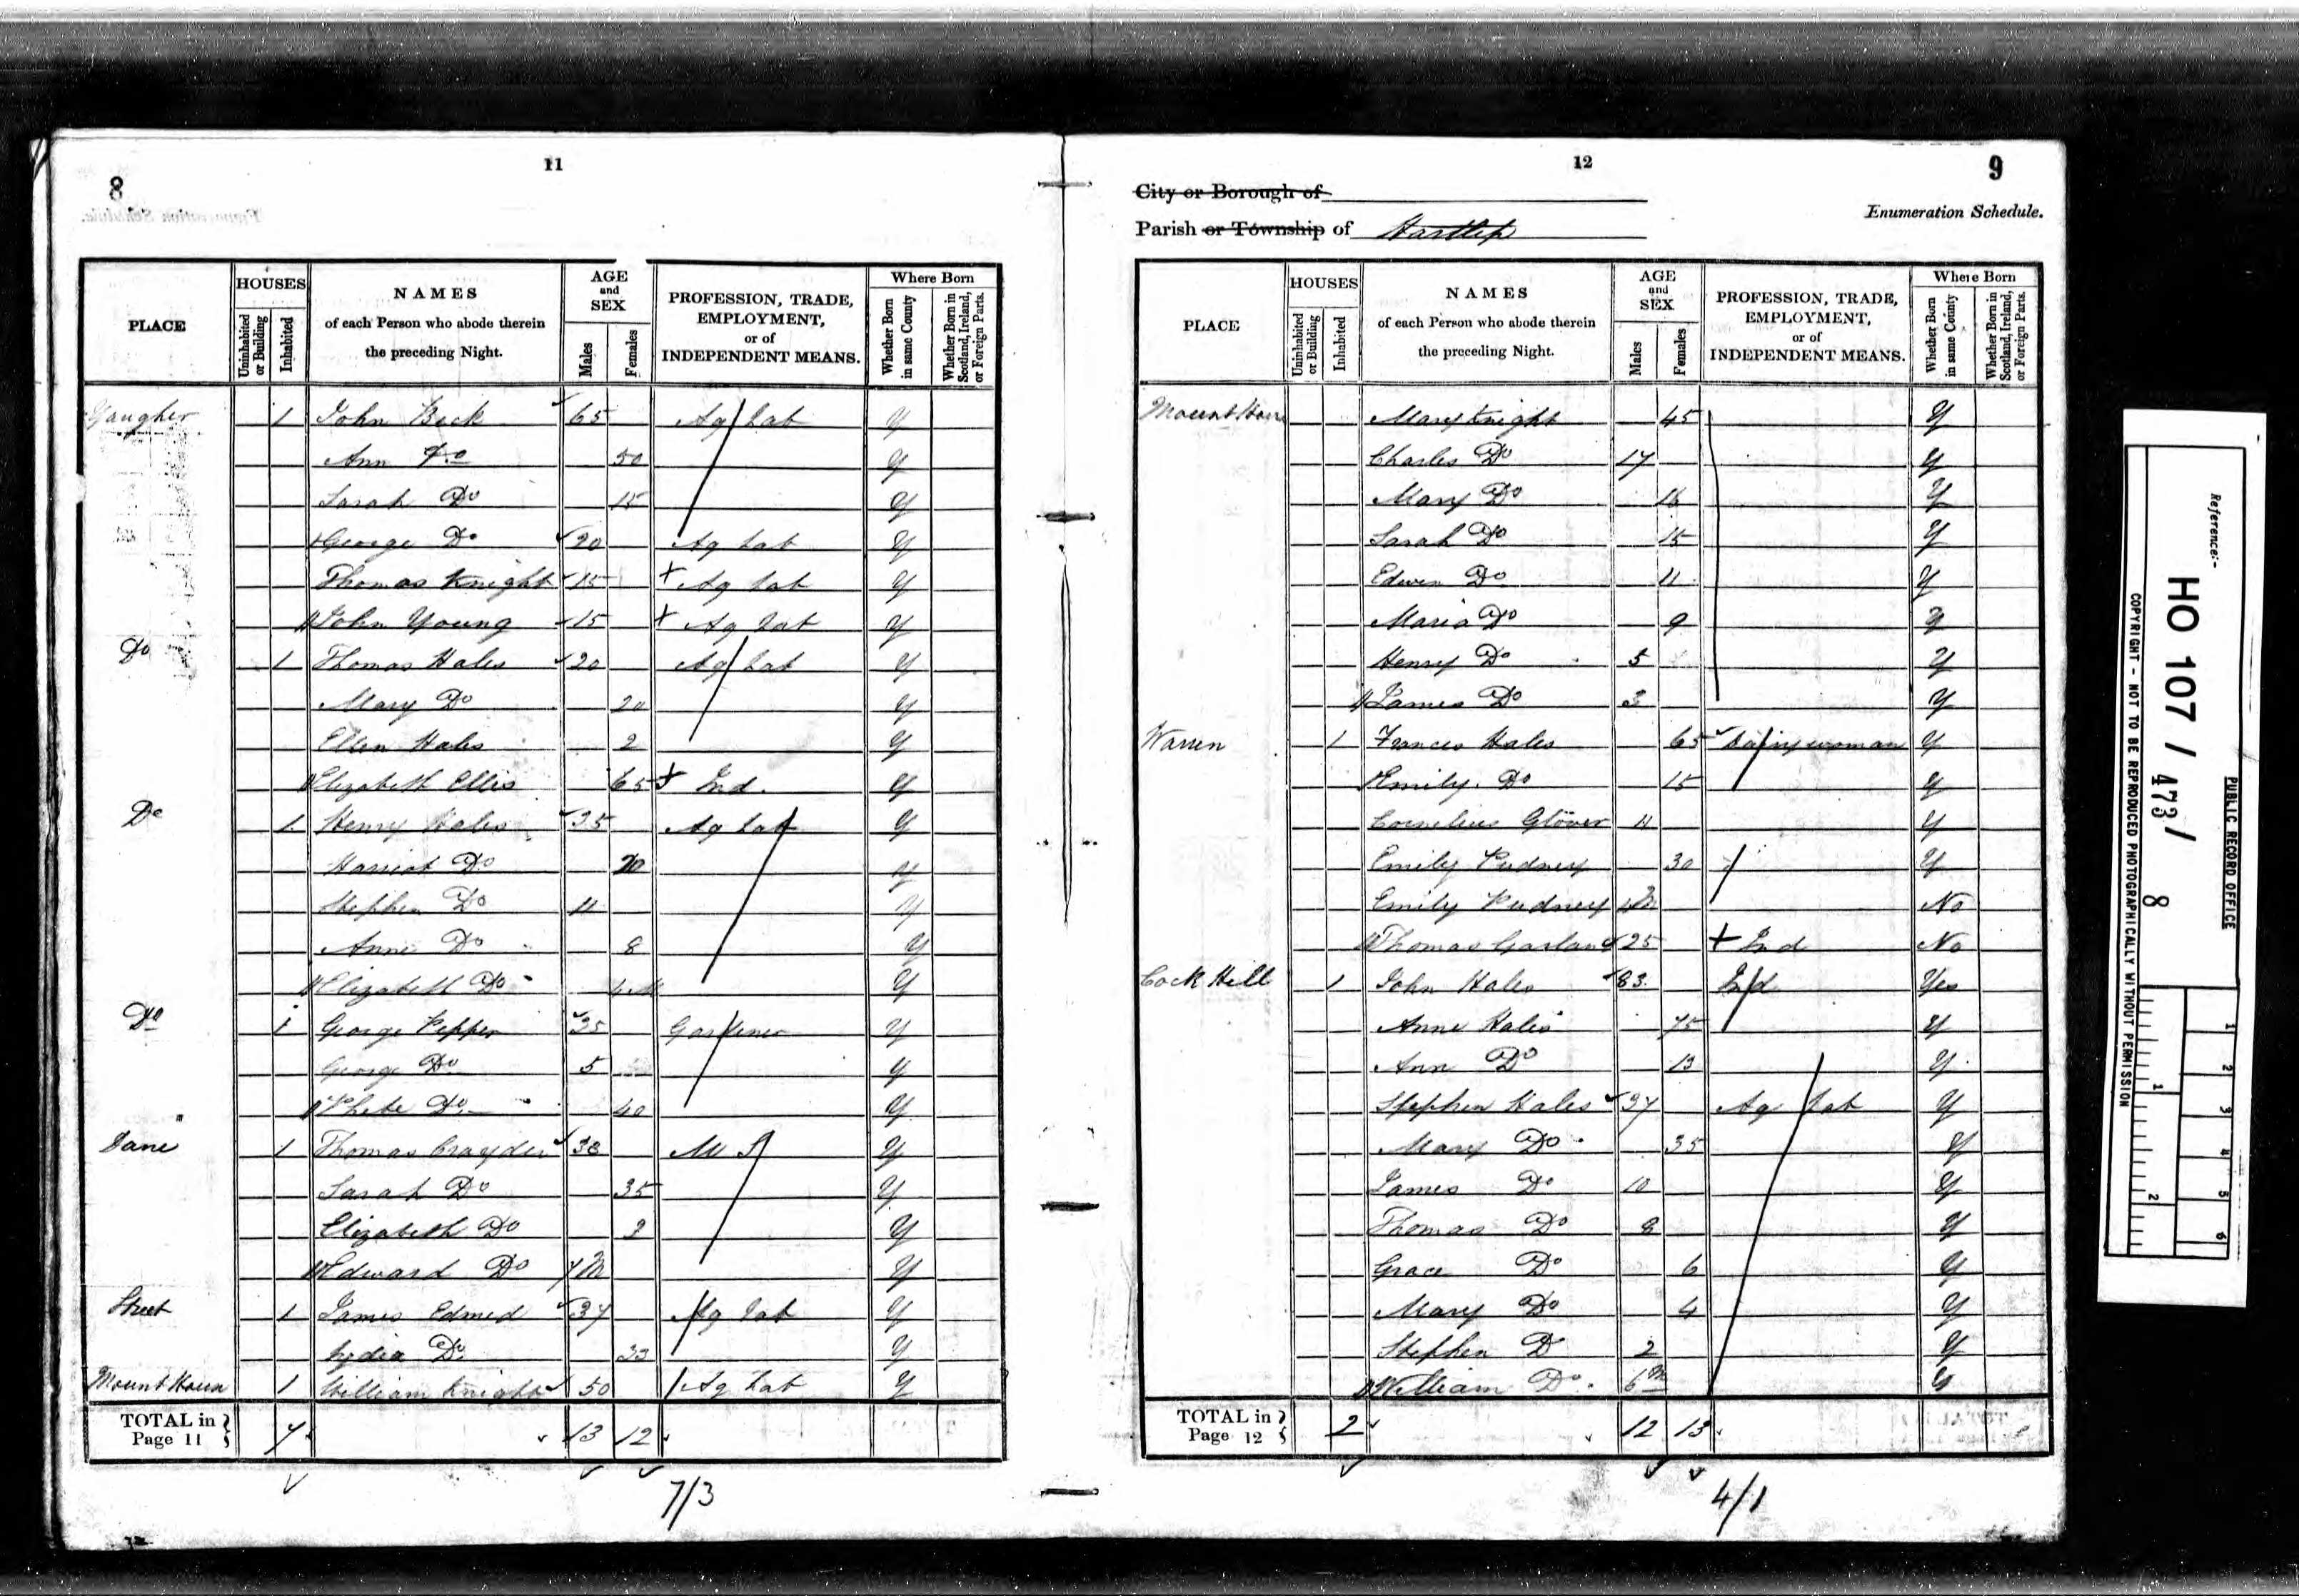 11
8
PLACE
HOUSES
Uninhabited or Building
Inhabited
NAMES
of each Person who abode therein
the preceding Night.
AGE
and
SEX
Males
Females
PROFESSION, TRADE,
EMPLOYMENT,
or of
INDEPENDENT MEANS.
Where Born
Whether Born in same County
Whether Born in Scotland, Ireland, or Foreign Parts.
1 John Beck 65 Ag Lab Y
Ann Do 50 Y
Sarah Do 15 Y
George Do 20 Ag Lab Y
Thomas Knight 15 + Ag Lab Y
John Young 15 + Ag Lab Y
Do 1 Thomas Hales 20 Ag Lab Y
Mary Do 20 Y
Ellen Hales 2 Y
Elizabeth Ellis 65 + Ind. Y
Do 1 Henry Hales 35 Ag Lab Y
Harriot Do Y
Stephen Do 11 Y
Anne Do 8 Y
Elizabeth Do Y
Do 1 George Pepper 35 Gardener Y
George Do 5 Y
Phebe Do 40 Y
Dane 1 Thomas 38 M S Y
Sarah Do 35 Y
Elizabeth Do Y
Edward Do 7 M Y
Street 1 James Edmed 37 Ag Lab Y
Lydia Do Y
Mount 1 William Knight 50 Ag Lab Y
TOTAL in Page 11 7 13 12
7/3
12
9
City or Borough of
Enumeration Schedule.
Parish or Township of Hartlip
PLACE
HOUSES
Uninhabited or Building
Inhabited
NAMES
of each Person who abode therein
the preceding Night.
AGE
and
SEX
Males
Females
PROFESSION, TRADE,
EMPLOYMENT,
or of
INDEPENDENT MEANS.
Where Born
Whether Born in same County
Whether Born in Scotland, Ireland, or Foreign Parts.
Mount Mary Knight 45 Y
Charles Do 17 Y
Mary Do 16 Y
Sarah Do 15 Y
Edwin Do 11 Y
Maria Do 9 Y
Henry Do 5 Y
James Do 3 Y
Warren 1 Frances Hales 65 Dairywoman Y
Emily Do 15 Y
Cornelius Glover 11 Y
Emily Pudney 30 Y
Emily Pudney No
Thomas Garland 25 + Ind No
Cock Hill 1 John Hales 83 Ind Yes
Anne Hales 75 Y
Ann Do 13 Y
Stephen Hales 37 Ag Lab Y
Mary Do 35 Y
James Do 10 Y
Thomas Do 8 Y
Grace Do 6 Y
Mary Do 4 Y
Stephen D 2 Y
William Do 6 M Y
TOTAL in Page 12 2 12 13
4/1
Reference:-
HO 107 / 473 / 8
PUBLIC RECORD OFFICE
COPYRIGHT - NOT TO BE REPRODUCED PHOTOGRAPHICALLY WITHOUT PERMISSION
1
2
3
4
5
6
1
2